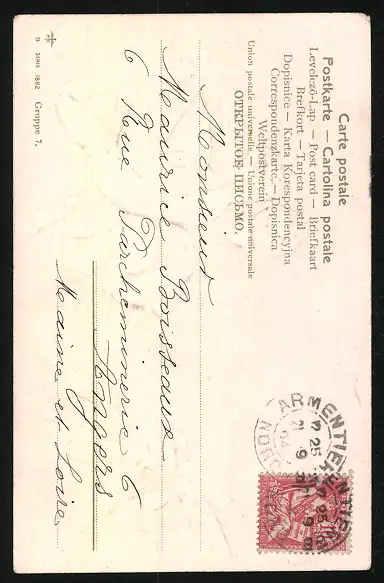 Carte postale
Postkarte — Cartolina postale
Levelező-Lap — Post card — Briefkaart
Brefkort — Tarjeta postal
Dopisnice — Karta Korespondencyjna
Correspondenzkarte. — Dopisnica
Weltpostverein
Union postale universelle — Unione postale universale
ОТКРЫТОЕ ПИСЬМО.
Monsieur
Maurice Boisseaux
6 Rue Parcheminerie 6
Angers
Maine et Loire
B SERIE 1882 Gruppe 7.
ARMENTIERES
7 25
21 9
04
NORD